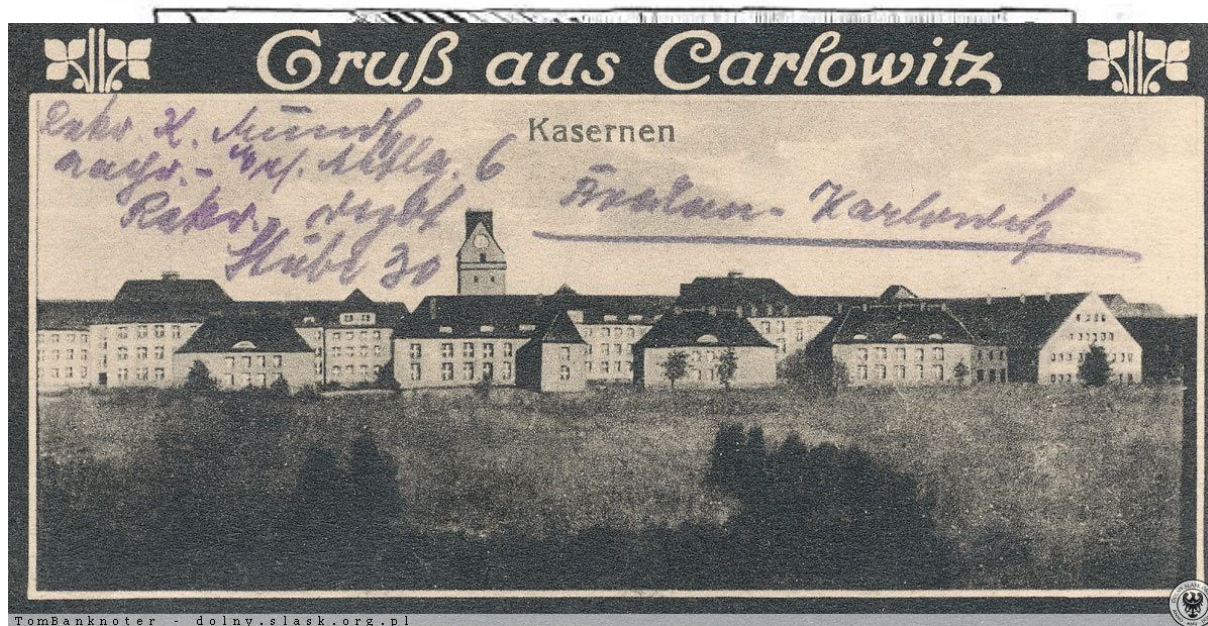 Gruß aus Carlowitz
Kasernen
Rekr. K.
Nachr. - Ers. Abtlg. 6
Rekr.
Stube 30
Breslau - Karlowitz
TomBanknoter - dolny.slask.org.pl